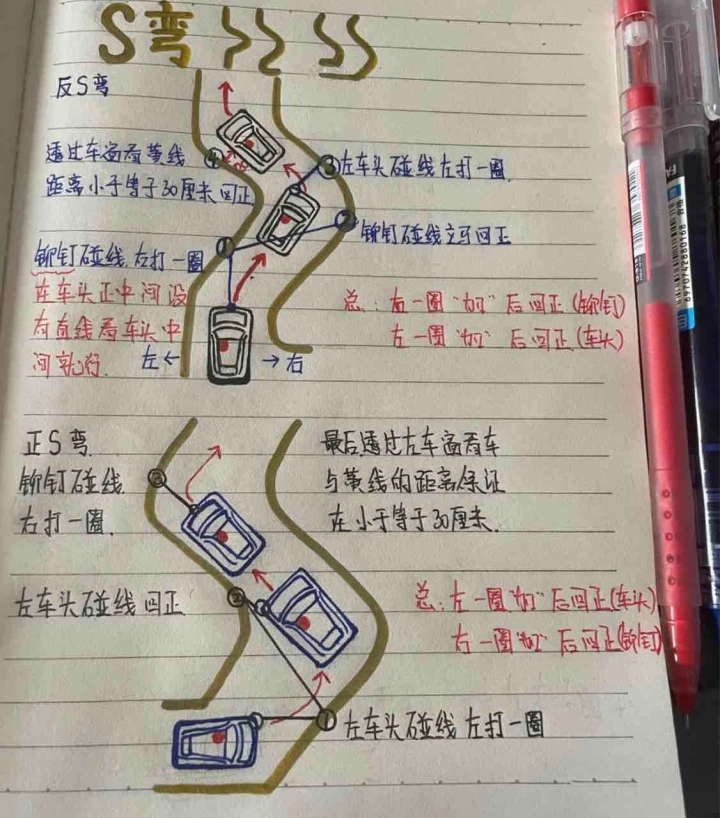 S弯
反S弯
透过车窗看黄线
距离小于等于30厘米回正
④
③左车头碰线左打一圈
②铆钉碰线立马回正
①
铆钉碰线右打一圈
在车头正中间没
有直线看车头中
间就行.
左← →右
总:右一圈 后回正(铆钉)
左一圈 后回正(车头)
正S弯.
铆钉碰线
右打一圈.
③
最后透过左车窗看车
与黄线的距离保证
在小于等于30厘米.
左车头碰线回正
②
总:左一圈 后回正(车头)
右一圈 后回正(铆钉)
①左车头碰线 左打一圈